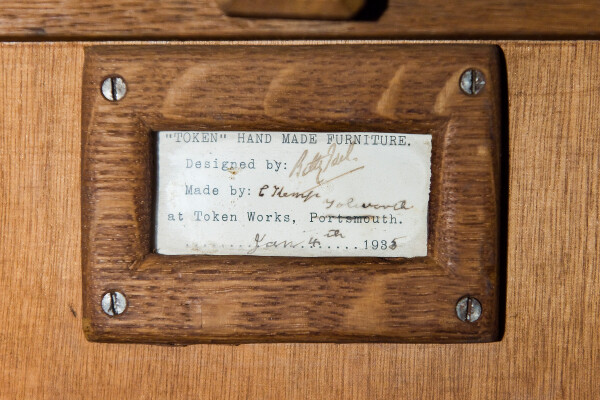 "TOKEN" HAND MADE FURNITURE.
Designed by: Betty Joel.
Made by: C Kemp
Tolworth
at Token Works, Portsmouth.
........Jan. 4th......1935